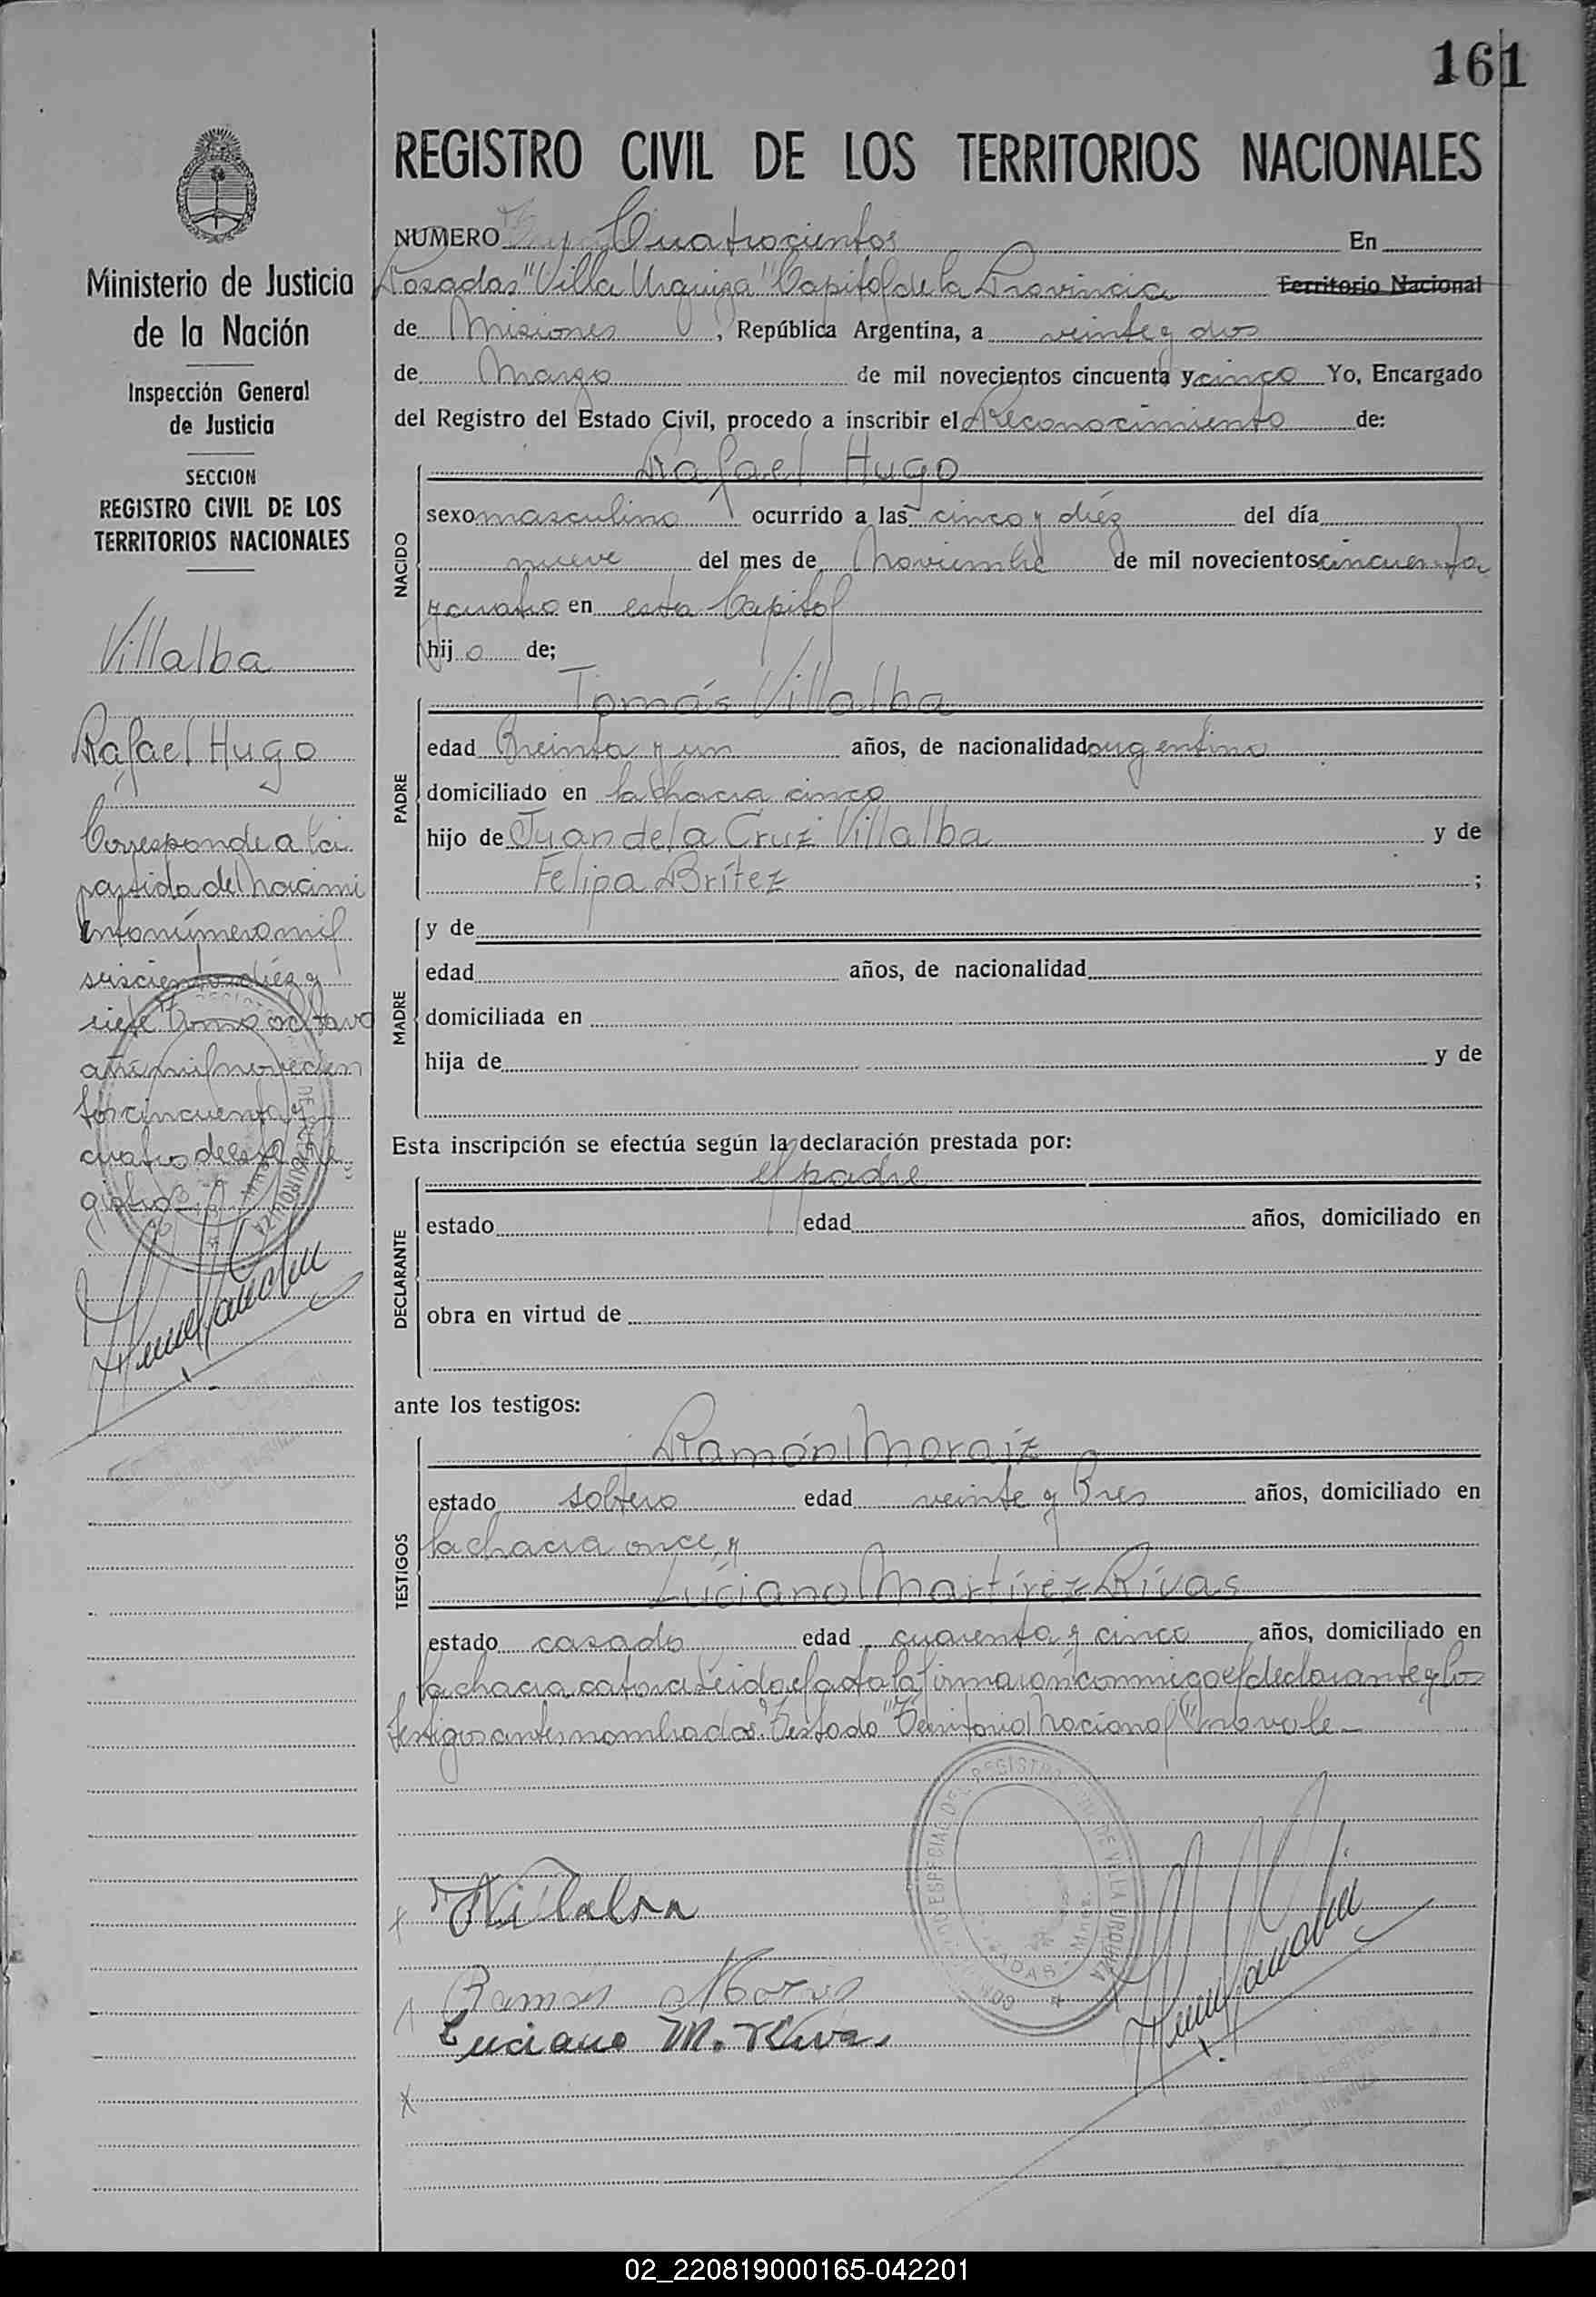 161
REGISTRO CIVIL DE LOS TERRITORIOS NACIONALES
NUMERO Cuatrocientos En
Posadas "Villa Urquiza" Capital de la Provincia Territorio Nacional
de Misiones, República Argentina, a veinte y dos
de Marzo de mil novecientos cincuenta y cinco Yo, Encargado
del Registro del Estado Civil, procedo a inscribir el Reconocimiento de:
NACIDO
Rafael Hugo
sexo masculino ocurrido a las cinco y diéz del día
nueve del mes de Noviembre de mil novecientos cincuenta
y cuatro en esta Capital
hijo de;
PADRE
Tomás Villalba
edad Treinta y un años, de nacionalidad argentino
domiciliado en la chacra cinco
hijo de Juan de la Cruz Villalba y de
Felipa Brítez ;
MADRE
y de
edad años, de nacionalidad
domiciliada en
hija de y de
Esta inscripción se efectúa según la declaración prestada por:
DECLARANTE
el padre
estado edad años, domiciliado en
obra en virtud de
ante los testigos:
TESTIGOS
Ramón Moraiz
estado soltero edad veinte y Tres años, domiciliado en
la chacra once, y
Luciano Martírez Rivas
estado casado edad cuarenta y cinco años, domiciliado en
la chacra catorce Leida el acta la firmaron conmigo el declarante y los
testigos antes nombrados. Testado "Territorio Nacional" no vale.-
Villalba
Ramon
Luciano M. Rivas
Ministerio de Justicia
de la Nación
Inspección General
de Justicia
SECCION
REGISTRO CIVIL DE LOS
TERRITORIOS NACIONALES
Villalba
Rafael Hugo
Corresponde a la
partida del nacimi
ento número mil
seiscientos diéz y
siete Tomo octavo
año mil novecien
tos cincuenta y
cuatro de este Re-
gistro
02_220819000165-042201